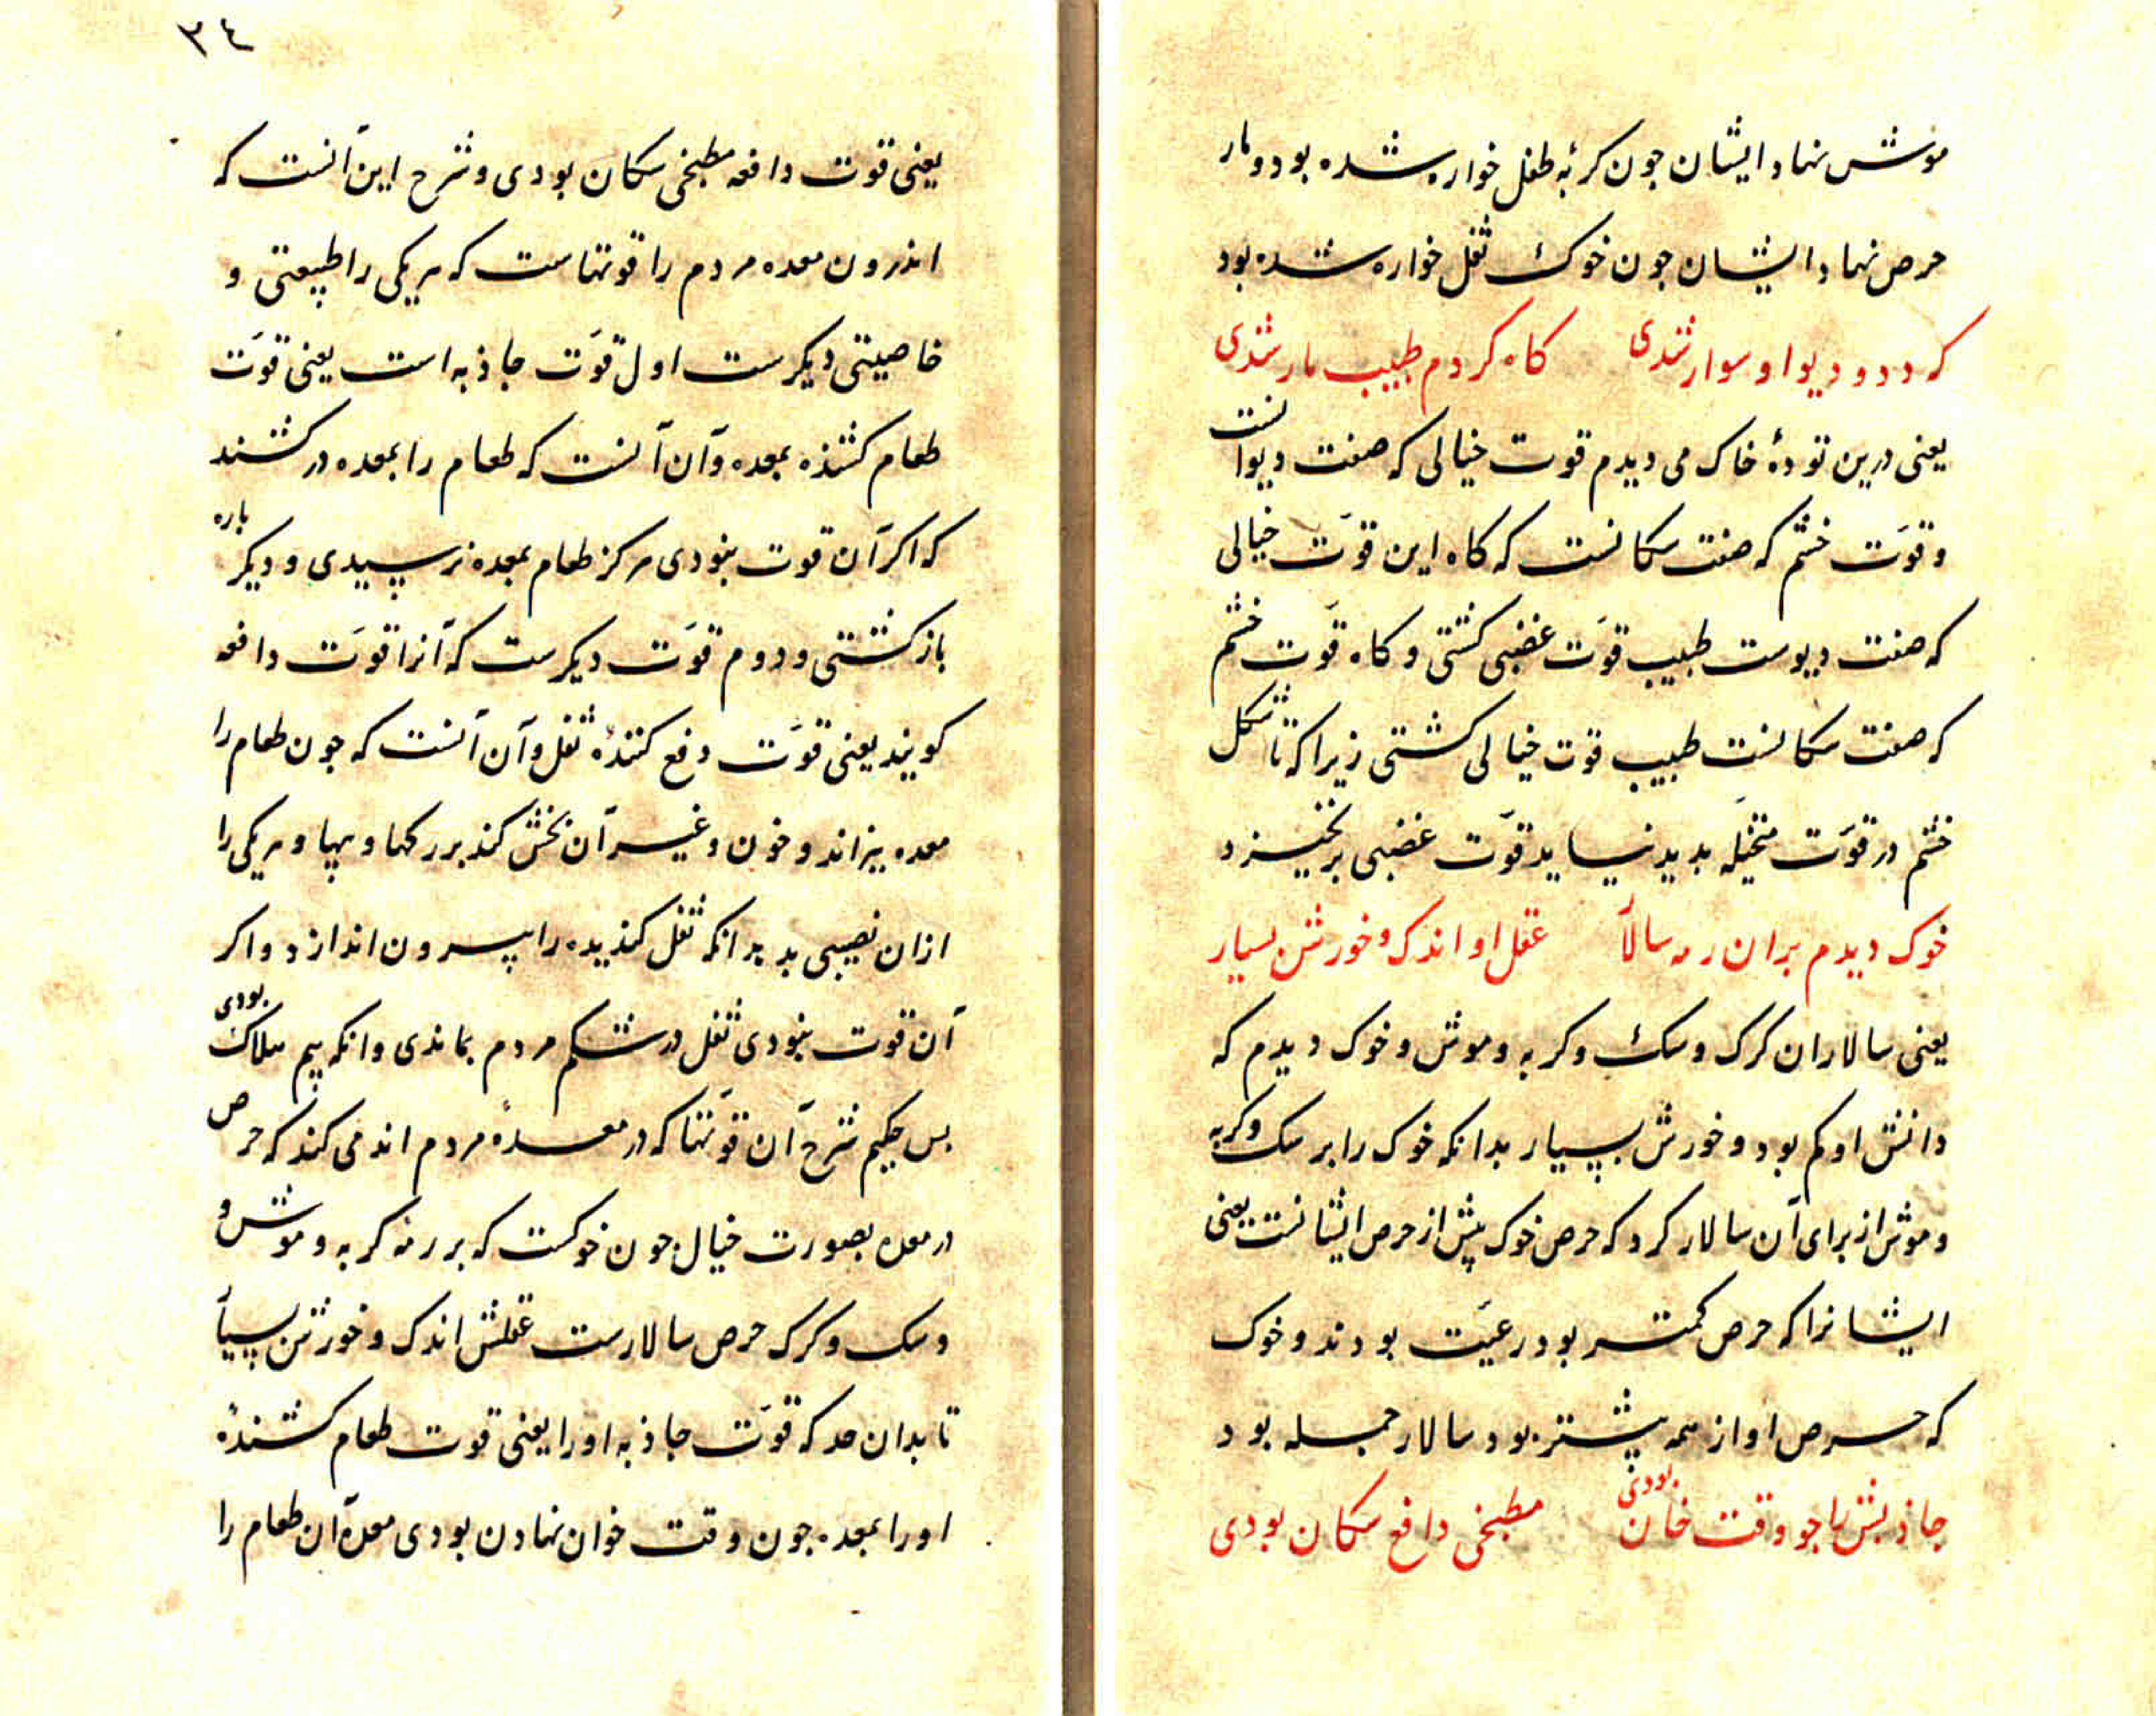 موش نهاد ایشان جون کربهٔ طفل خواره شده بود و مار
حرص نهاد ایشان جون خوک ثفل خواره شده بود
که ددو دیو او سوار شدی کاه کردم طبیب مار شدی
یعنی درین تودهٔ خاک می دیدم قوت خیالی که صفت دیوانست
و قوّت خشم که صفت سکانست که کاه این قوّت خیالی
که صفت دیوست طبیب قوّت غضبی کشتی و کاه قوّت خشم
که صفت سکانست طبیب قوت خیالی کشتی زیرا که تا شکل
خشم در قوّت متخیّله بدید نیاید قوّت غضبی برنخیزد
خوک دیدم بران رمه سالاٰ عقل او اندک و خورش بسیار
یعنی سالاران کرک و سک و کربه و موش و خوک دیدم که
دانش او کم بود و خورش بسیار بدانکه خوک را بر سک و کربه
و موش از برای آن سالار کرد که حرص خوک پیش از حرص ایشانست یعنی
ایشانرا که حرص کمتر بود رعیّت بودند و خوک
که حرص او از همه بیشتر بود سالار جمله بود
جاذبش باجو وقت خان بودی مطبخی دافع سکان بودی
٣٤
یعنی قوت دافعه مطبخی سکان بودی و شرح این آنست که
اندرون معده مردم را قوتهاست که هریکی را طبیعتی و
خاصیتی دیکرست اول قوّت جاذبه است یعنی قوّت
طعام کشنده بمعده و آن آنست که طعام را بمعده در کشند
که اکر آن قوت نبودی هرکز طعام بمعده نرسیدی و دیکر باره
بازکشتی و دوم قوّت دیکرست که آنرا قوّت دافعه
کویند یعنی قوّت دفع کنندهٔ ثفل و آن آنست که جون طعام را
معده بپزاند و خون و غیر آن بخش کند بر رکها و پیها و هریکی را
ازان نصیبی بدهد انکه ثفل کندیده را بیرون اندازد و اکر
آن قوت نبودی ثفل در شکم مردم بماندی وانکه بیم هلاک بودی
بس حکیم شرح آن قوّتها که در معدهٔ مردم اند می کند که حرص
در معده بصورت خیال جون خوکست که بر رمه کربه و موش و
و سک و کرک حرص سالارست عقلش اندک و خورش بسیاٰ
تا بدان حد که قوّت جاذبه او را یعنی قوت طعام کشندهٔ
او را بمعده جون وقت خوان نهادن بودی معده آن طعام را